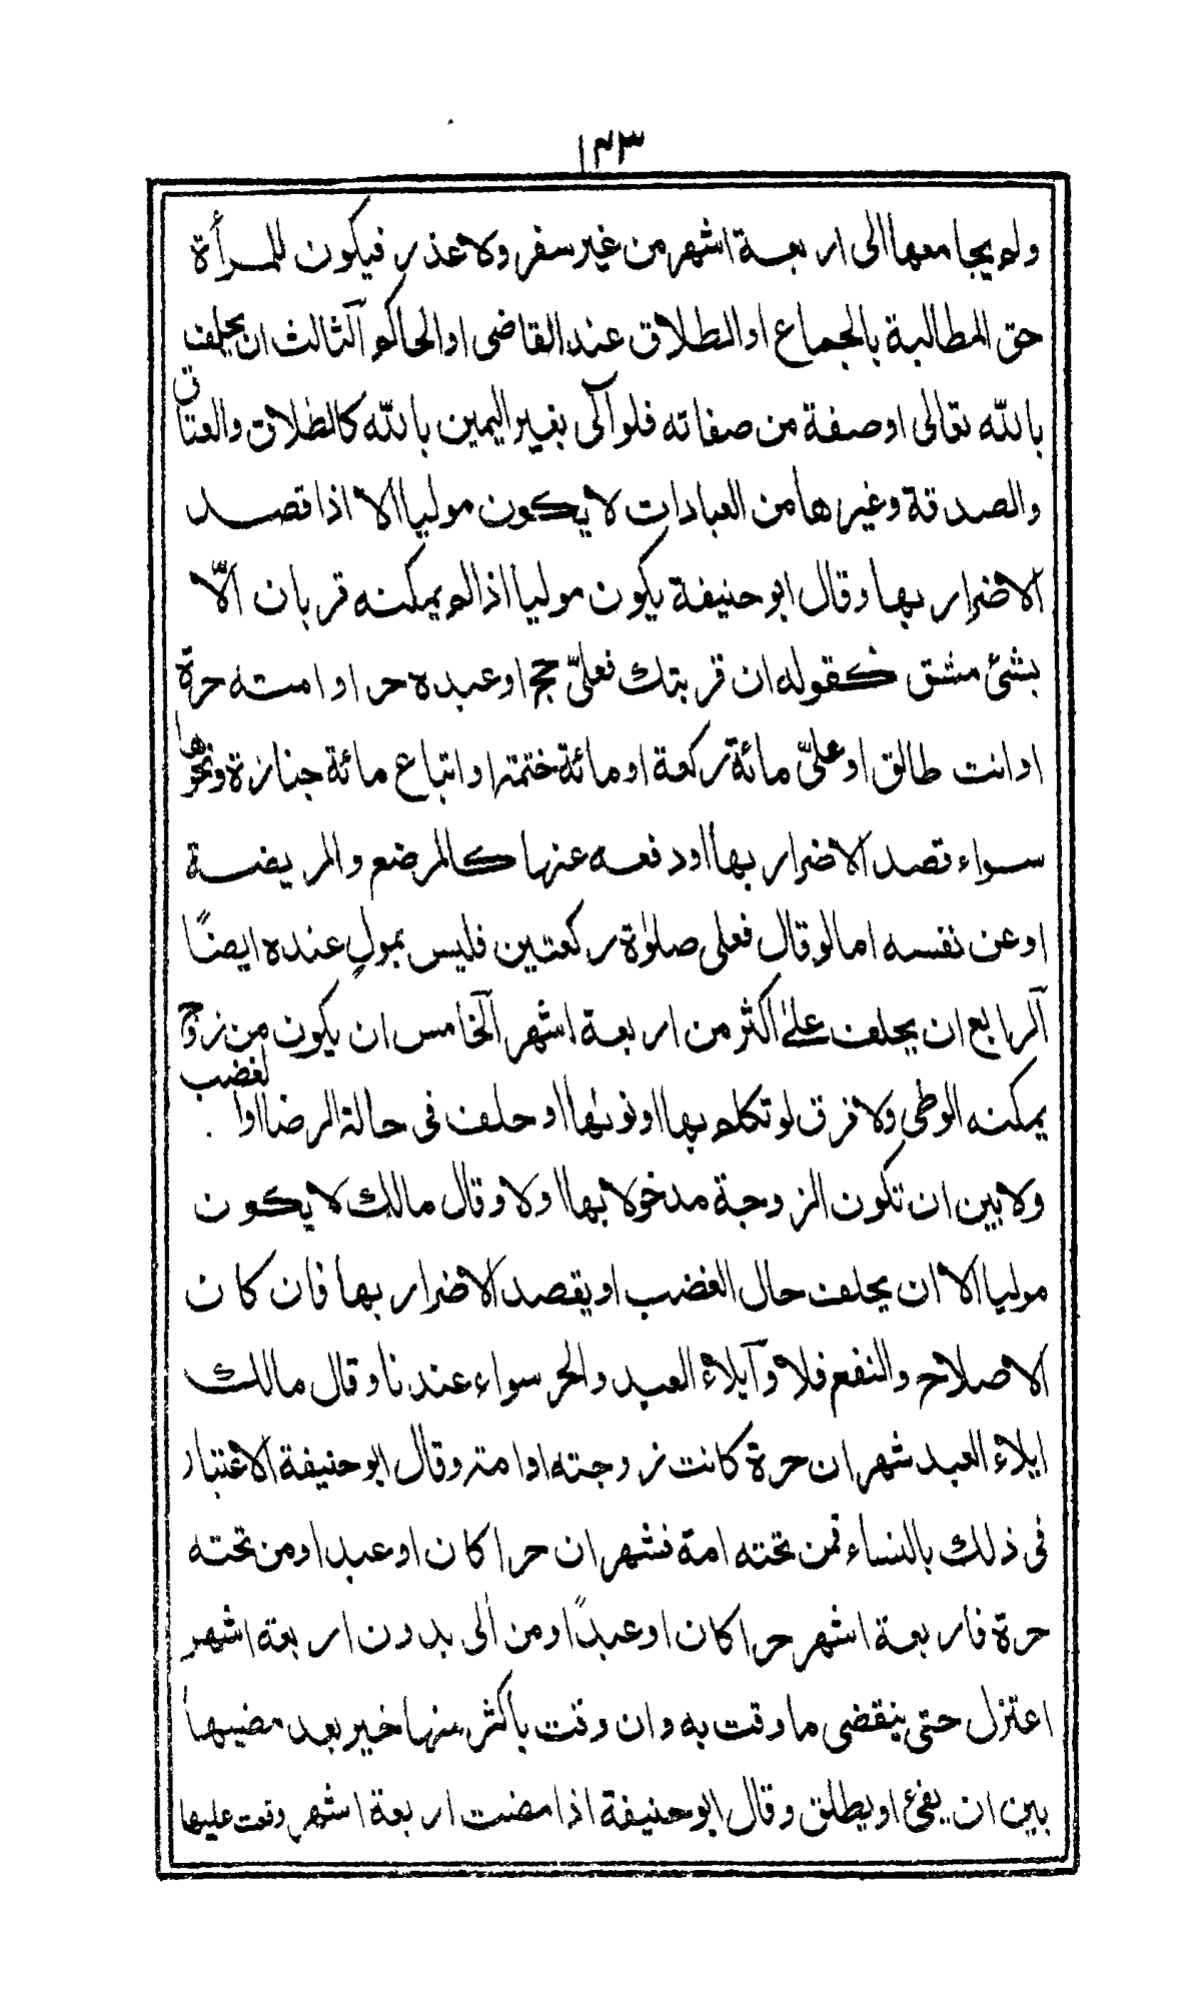 ١٤٣
ولم يجامعها الى اربعة اشهر من غير سفر ولا عذر فيكون للمرأة
حق المطالبة بالجماع او الطلاق عند القاضى او الحاكم الثالث ان يحلف
بالله تعالى او صفة من صفاته فلو آلى بغير اليمين بالله كالطلاق والعتاق
والصدقة وغيرها من العبادات لا يكون موليا الا اذا قصد
الاضرار بها وقال ابو حنيفة يكون موليا اذا لم يمكنه قربان الّا
بشئ مشق كقوله ان قربتك فعليّ حج او عبده حر او امته حرة
او انت طالق او عليّ مائة ركعة او مائة ختمة او اتباع مائة جنازة ونحوها
سواء قصد الاضرار بها او دفعه عنها كالمرضع والمريضة
او عن نفسه اما لو قال فعلى صلوٰة ركعتين فليس بمولٍ عنده ايضًا
الرابع ان يحلف علىٰ اكثر من اربعة اشهر الخامس ان يكون من زوج
يمكنه الوطى ولا فرق لو تكلم بها او نوٰىها او حلف فى حالة الرضا او الغضب
ولا بين ان تكون الزوجة مدخولا بها او لا وقال مالك لا يكون
موليا الا ان يحلف حال الغضب او يقصد الاضرار بها فان كان
الاصلاح والنفع فلا وآيلاء العبد والحر سواء عندنا وقال مالك
ايلاء العبد شهران حرة كانت زوجته او امة وقال ابو حنيفة الاعتبار
فى ذلك بالنساء فمن تحته امة فشهران حرا كان او عبدا ومن تحته
حرة فاربعة اشهر حرا كان او عبدًا ومن اٰلى بدون اربعة اشهر
اعتزل حتى ينقضى ما وقت به وان وقت باكثر منها خير بعد مضيها
بين ان يفئ او يطلق وقال ابو حنيفة اذا مضت اربعة اشهر وقعت عليها